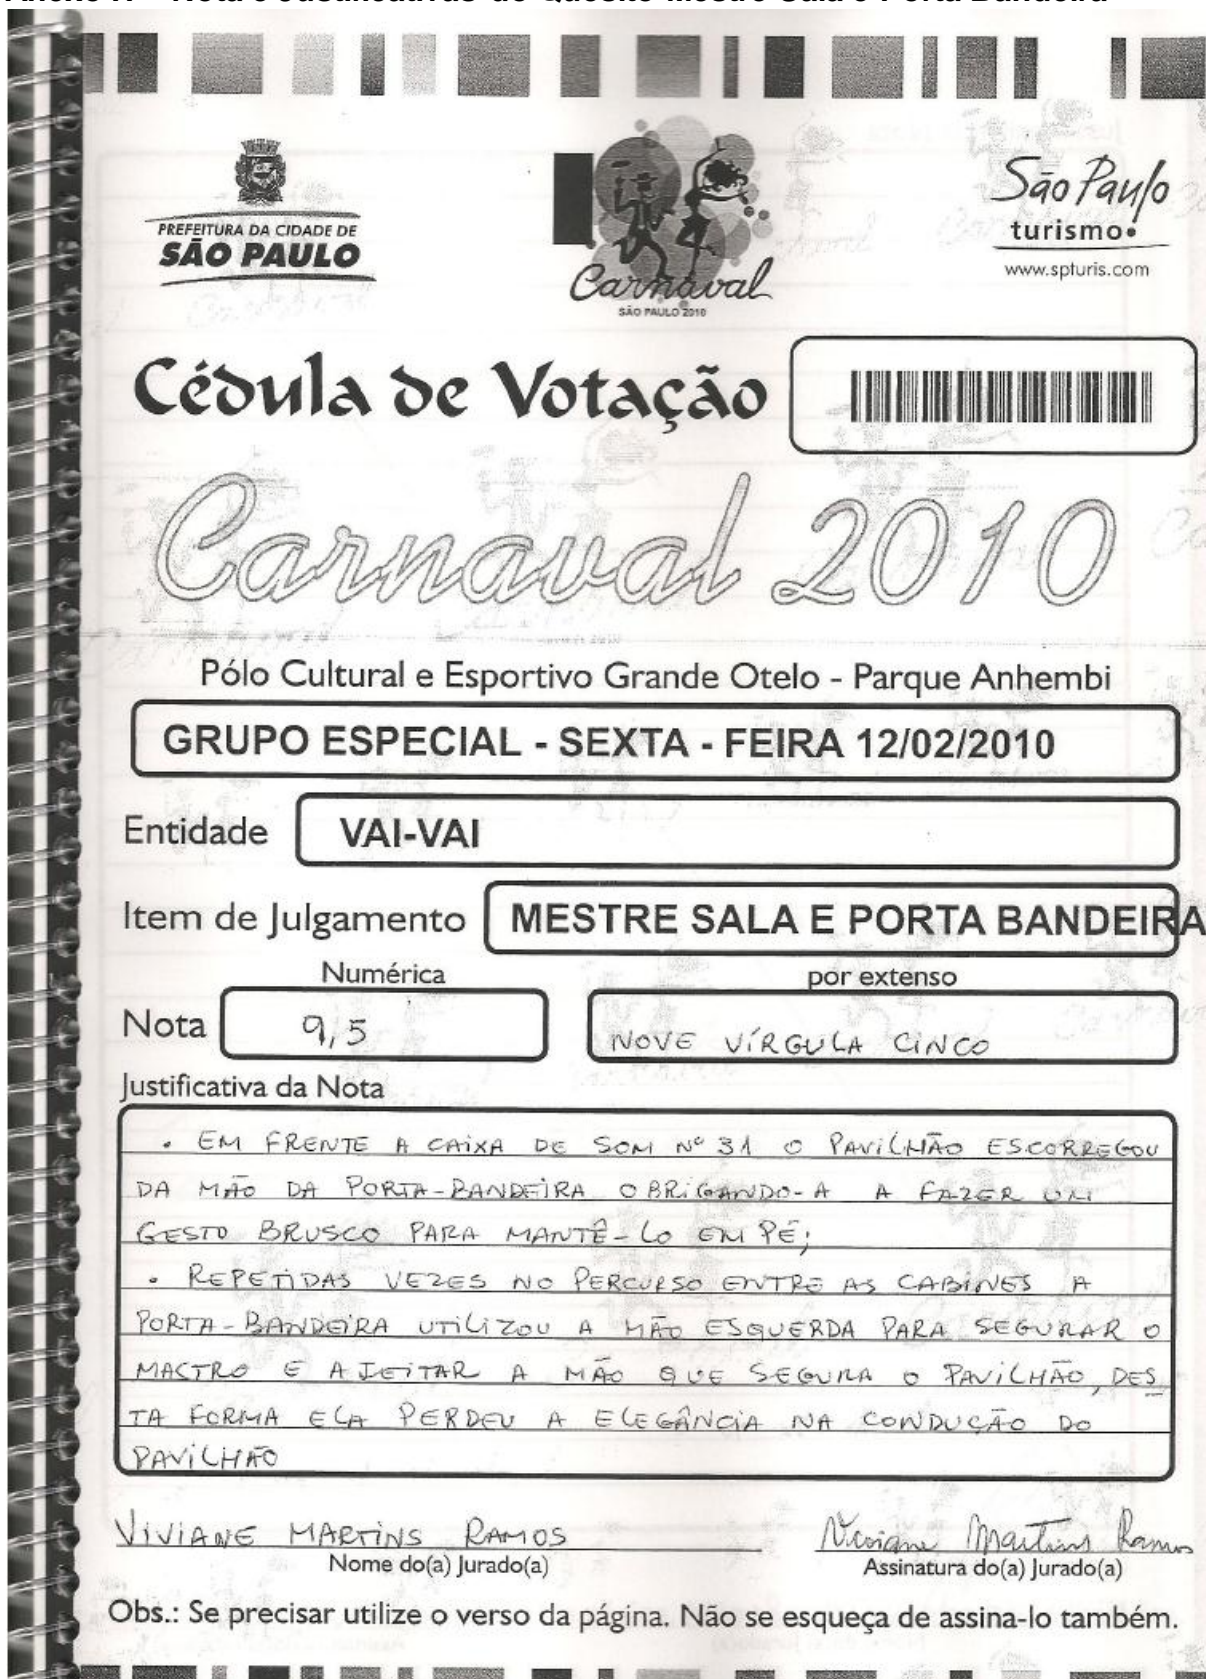 PREFEITURA DA CIDADE DE
SÃO PAULO
Carnaval
SÃO PAULO 2010
São Paulo
turismo
www.spturis.com
Cédula de Votação
Carnaval 2010
Pólo Cultural e Esportivo Grande Otelo - Parque Anhembi
GRUPO ESPECIAL - SEXTA - FEIRA 12/02/2010
Entidade VAI-VAI
Item de Julgamento MESTRE SALA E PORTA BANDEIRA
Numérica por extenso
Nota 9,5 NOVE VÍRGULA CINCO
Justificativa da Nota
• EM FRENTE A CAIXA DE SOM Nº 31 O PAVILHÃO ESCORREGOU
DA MÃO DA PORTA-BANDEIRA OBRIGANDO-A A FAZER UM
GESTO BRUSCO PARA MANTÊ-LO EM PÉ;
• REPETIDAS VEZES NO PERCURSO ENTRE AS CABINES A
PORTA-BANDEIRA UTILIZOU A MÃO ESQUERDA PARA SEGURAR O
MASTRO E AJEITAR A MÃO QUE SEGURA O PAVILHÃO, DES
TA FORMA ELA PERDEU A ELEGÂNCIA NA CONDUÇÃO DO
PAVILHÃO
VIVIANE MARTINS RAMOS Viviane Martins Ramos
Nome do(a) Jurado(a) Assinatura do(a) Jurado(a)
Obs.: Se precisar utilize o verso da página. Não se esqueça de assina-lo também.